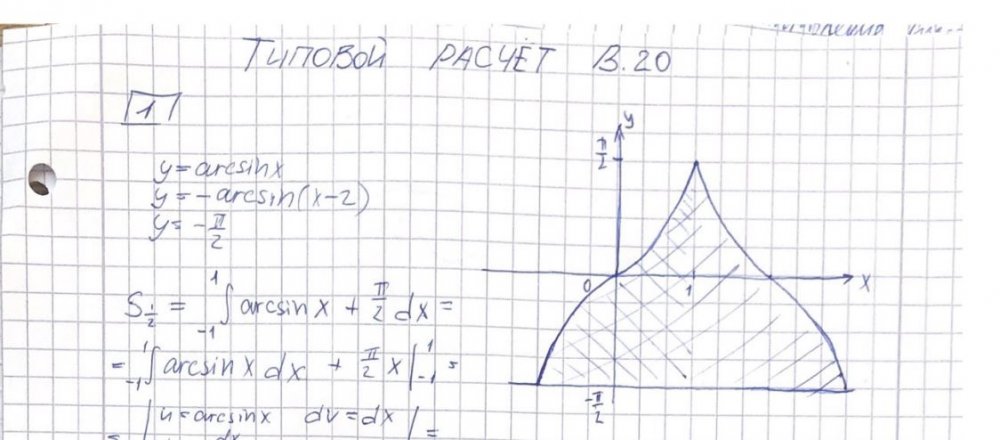 ТИПОВОЙ РАСЧЁТ В.20
1
y = arcsin x
y = -arcsin(x-2)
y = -π/2
S½ = ₋₁¹∫ arcsin x + π/2 dx =
= ₋₁¹∫ arcsin x dx + π/2 x|₋₁¹ =
= | u = arcsin x dv = dx | =
dx
y
π/2
0
1
x
-π/2